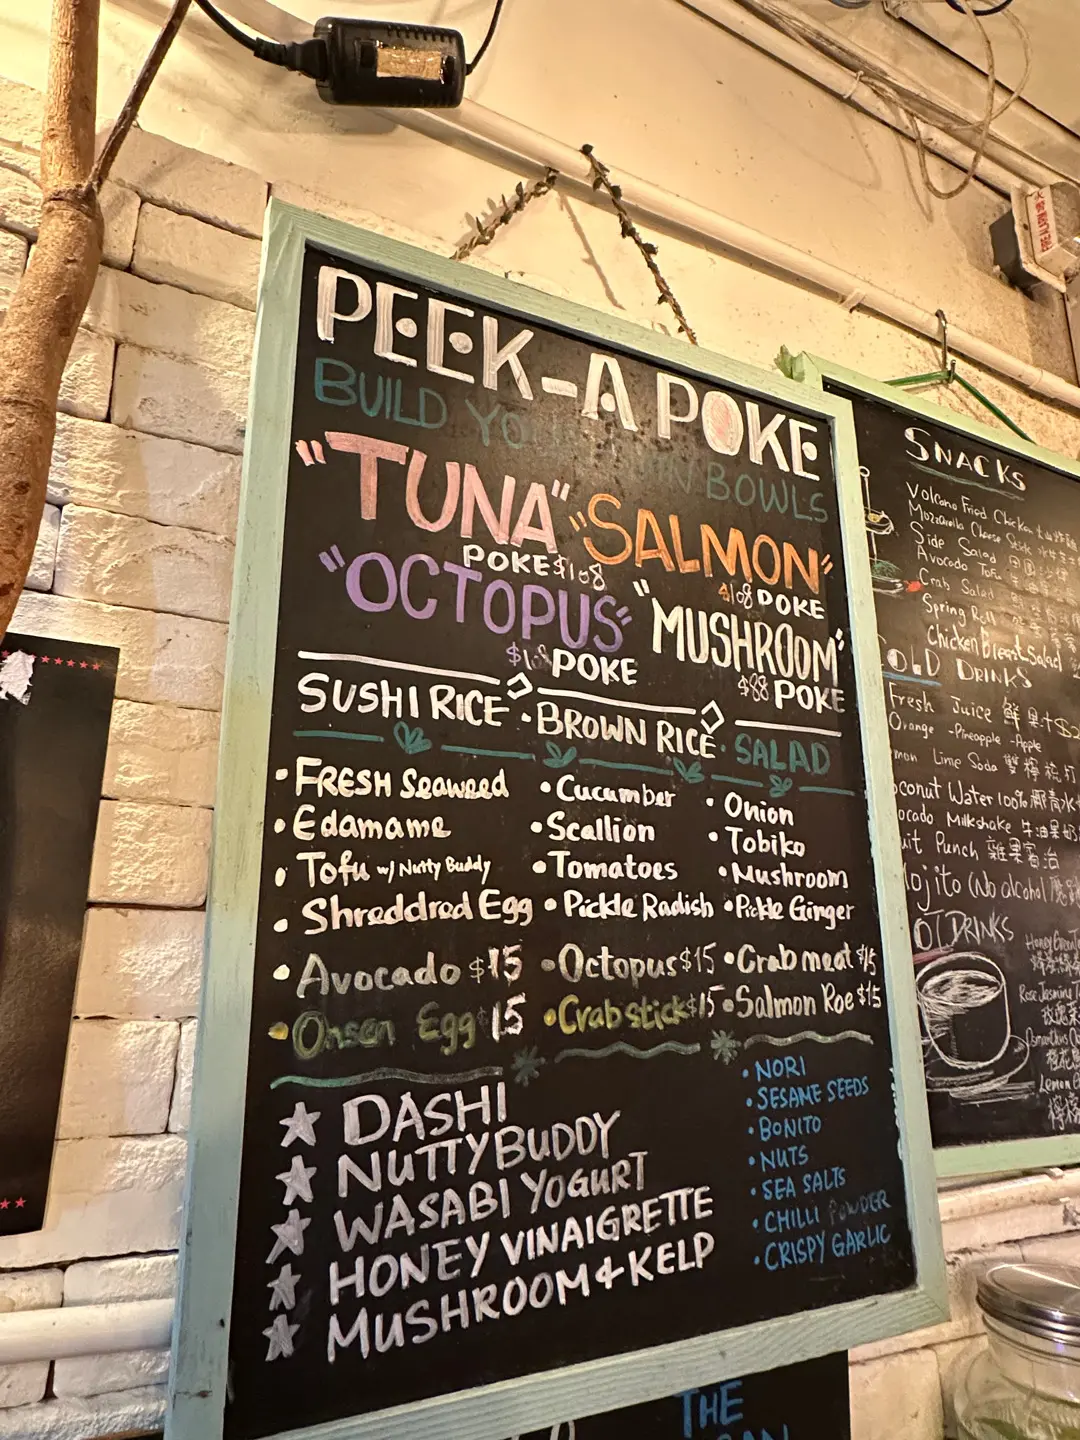 PEEK-A POKE
BUILD YO IN BOWLS
"TUNA" "SALMON"
POKE $108 $108 POKE
"OCTOPUS" "MUSHROOM"
POKE $88 POKE
SUSHI RICE · BROWN RICE · SALAD
• FRESH Seaweed • Cucumber • Onion
• Edamame • Scallion • Tobiko
• Tofu w/ Nutty Buddy • Tomatoes • Mushroom
• Shreddred Egg • Pickle Radish • Pickle Ginger
• Avocado $15 • Octopus $15 • Crab meat $15
• Onsen Egg $15 • Crab stick $15 • Salmon Roe $15
★ DASHI
★ NUTTY BUDDY
★ WASABI YOGURT
★ HONEY VINAIGRETTE
★ MUSHROOM & KELP
• NORI
• SESAME SEEDS
• BONITO
• NUTS
• SEA SALTS
• CHILLI POWDER
• CRISPY GARLIC
THE
SNACKS
Volcano Fried Chicken
Mozzarella Cheese Stick
Side Salad 田園沙律
Avocado Tofu
Crab Salad
Spring Roll
Chicken Breast Salad
OLD DRINKS
Fresh Juice 鮮果汁 $2
Orange - Pineapple - Apple
mon Lime Soda 雙檸梳打
oconut Water 100% 椰青水
ocado Milkshake 牛油果奶
uit Punch 雜果賓治
ojito (No alcohol)
OT DRINKS
Honey Green T
Rose Jasmine T
玫瑰茉
Lemon
檸檬